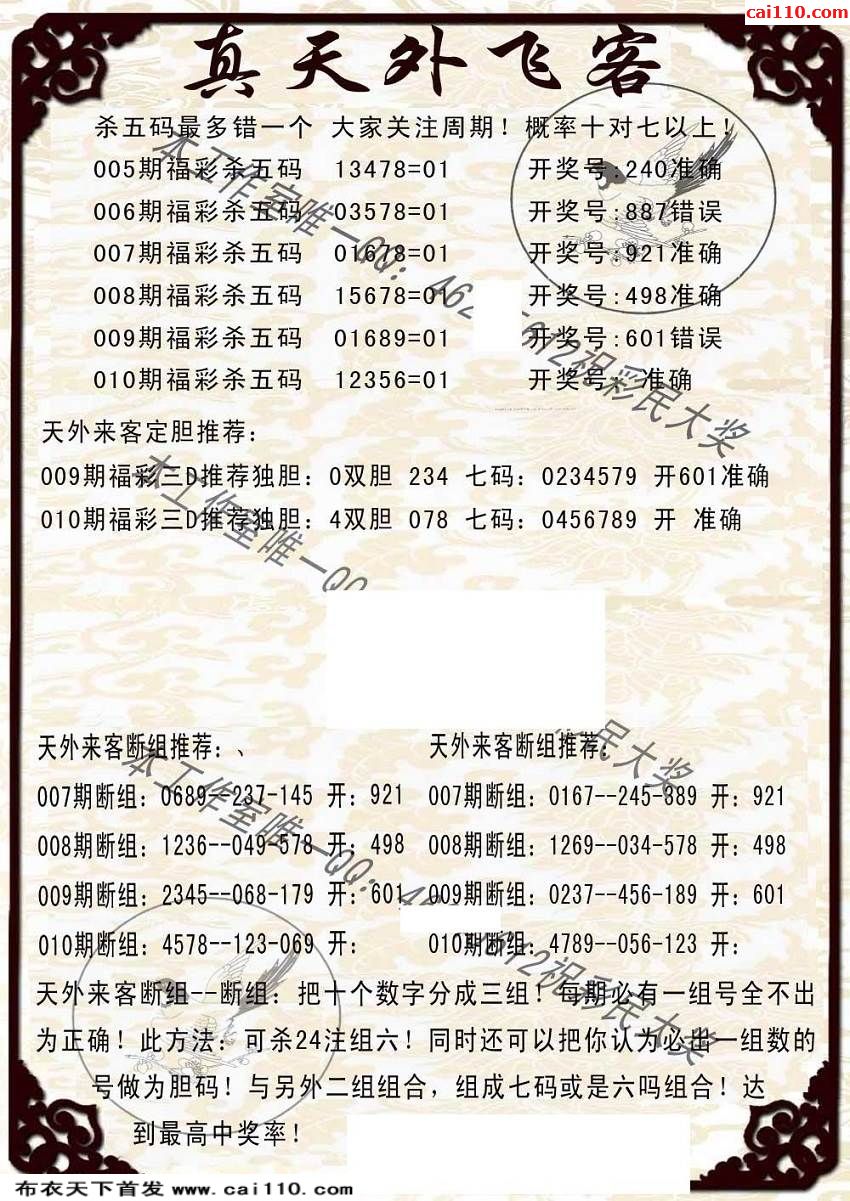 cai110.com
真天外飞客
杀五码最多错一个 大家关注周期！概率十对七以上！
005期福彩杀五码 13478=01 开奖号:240准确
006期福彩杀五码 03578=01 开奖号:887错误
007期福彩杀五码 01678=01 开奖号:921准确
008期福彩杀五码 15678=01 开奖号:498准确
009期福彩杀五码 01689=01 开奖号:601错误
010期福彩杀五码 12356=01 开奖号: 准确
天外来客定胆推荐：
009期福彩三D推荐独胆：0双胆 234 七码：0234579 开601准确
010期福彩三D推荐独胆：4双胆 078 七码：0456789 开 准确
天外来客断组推荐：、 天外来客断组推荐：
007期断组：0689--237-145 开：921 007期断组：0167--245-889 开：921
008期断组：1236--049-578 开：498 008期断组：1269--034-578 开：498
009期断组：2345--068-179 开：601 009期断组：0237--456-189 开：601
010期断组：4578--123-069 开： 010期断组：4789--056-123 开：
天外来客断组--断组：把十个数字分成三组！每期必有一组号全不出
为正确！此方法：可杀24注组六！同时还可以把你认为必出一组数的
号做为胆码！与另外二组组合，组成七码或是六吗组合！达
到最高中奖率！
本工作室唯一QQ：462 祝彩民大奖
本工作室唯一QQ 民大奖
本工作室唯一QQ：46 祝彩民大奖
布衣天下首发 www.cai110.com